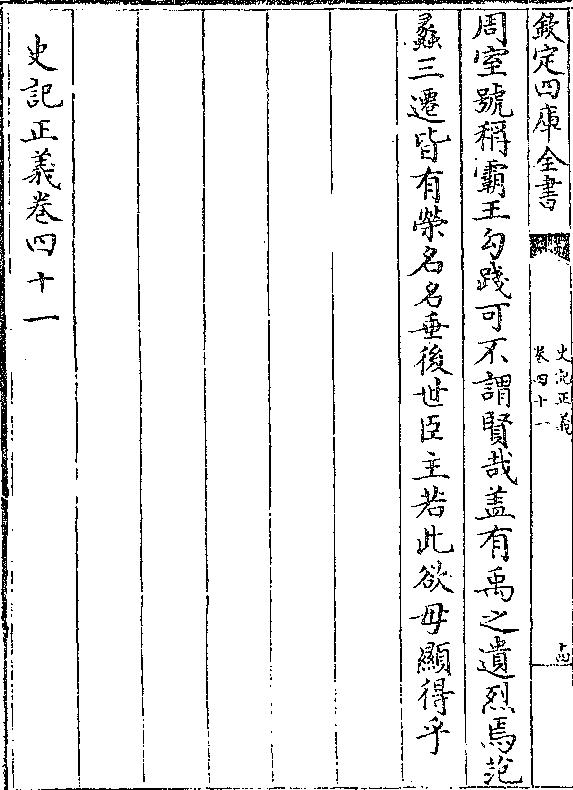 欽定四庫全書
史記正義
卷四十一
十四
周室號稱霸王勾踐可不謂賢哉盖有禹之遺烈焉范
蠡三遷皆有榮名名垂後世臣主若此欲毋顯得乎
史記正義卷四十一